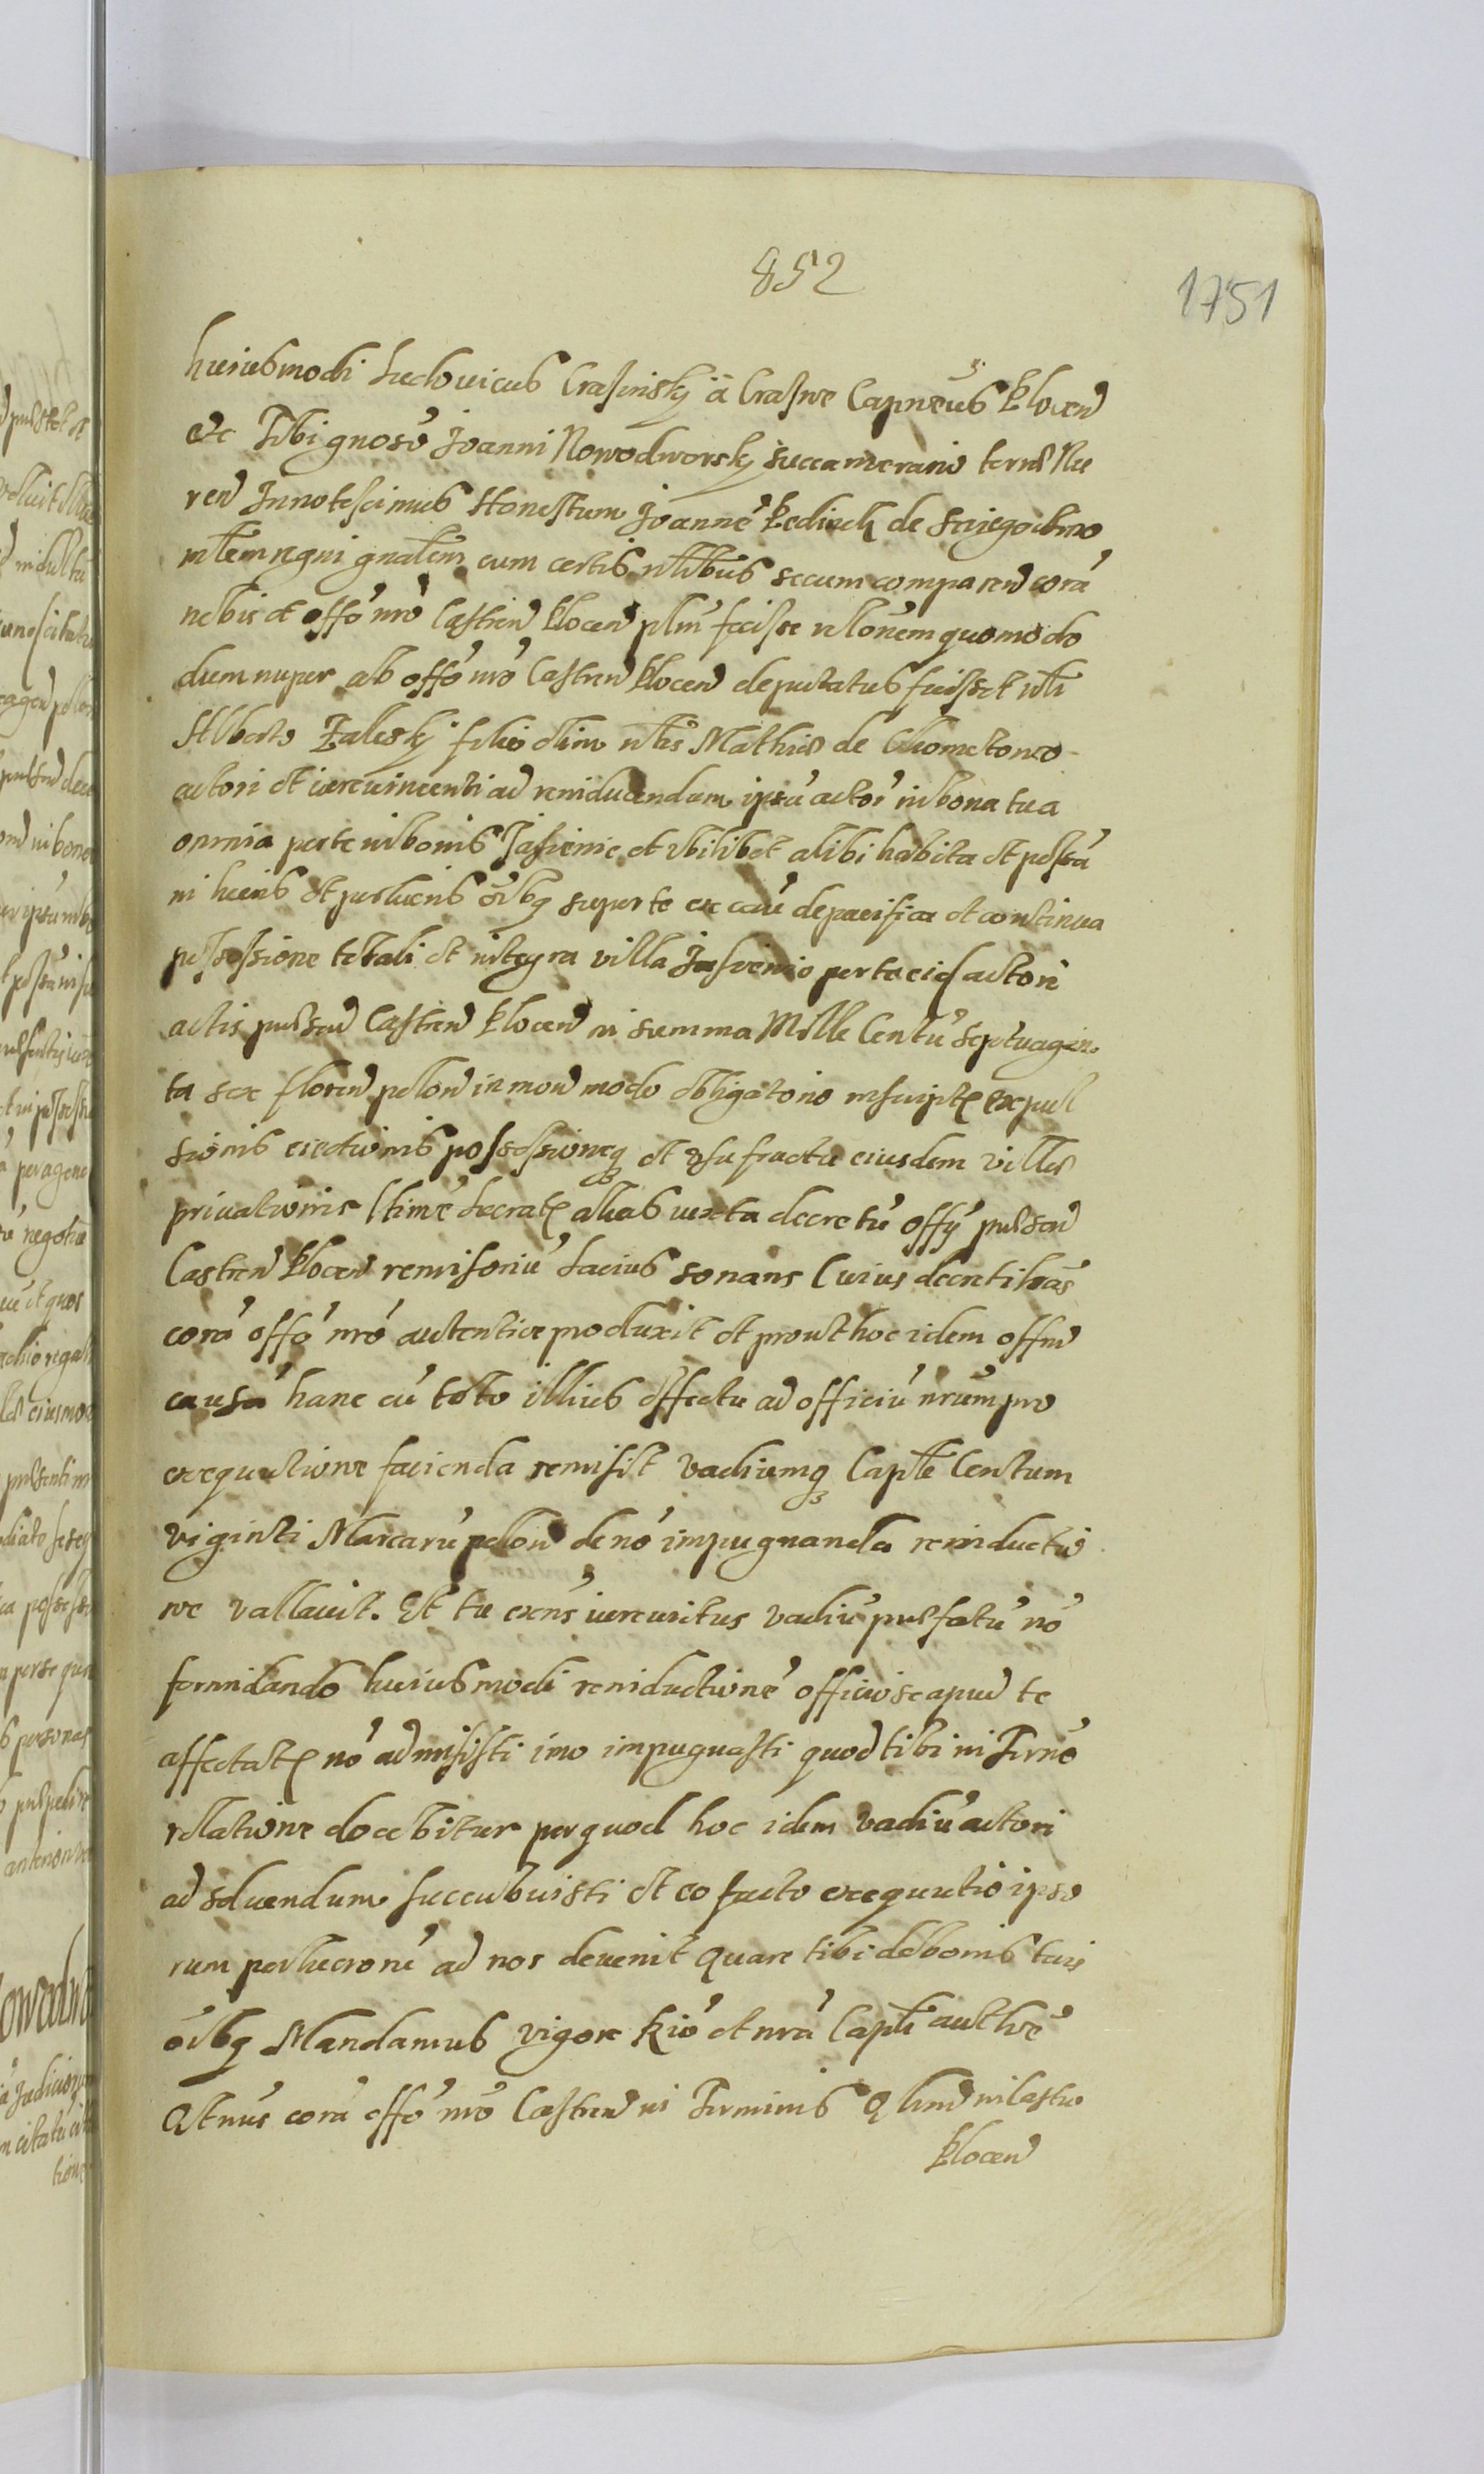 852
1751
huiusmodi Ludovicus Crasinsky à Crasne Capneus Plocen
etc Tibi gnoso Joanni Nowodworsky succamerario terrae
ren Innotescimus Honestum Joanne de
mlem regni gnalem cum certis nlibus secum comparen cora
nobis et offo nro Castren Plocen plm fecisse rlonem quomodo
dum nuper ab offo nro Castren Plocen deputatus fuisset nli
Alberto Zalesky filio olim nlis Mathiae de Chometowo
actori et iurevincenti ad reinducendum ipsu actore in bona tua
omnia per te in bonis Jasienie et vbilibet alibi habita et possa
in lucris et perlucris oibq super te ex cau de pacifica et continua
possessione totali et integra villa Jasienio per te eid actori
actis pulsan Castren Plocen in summa Mille Centu septuagin
ta sex floren polon in mon modo obligatorio inscripte expul
sionis eiectionis possessionisq et vsufructu eiusdem villae
priuationis ltime lucrate alias iuxta decretu offy pulsan
Castren Plocen remissoriu Lacius sonans Cuius decreti lras
cora offo nro autentice produxit et prout hoc idem offm
causa hanc cu toto illius effectu ad officiu nrum pro
exequutione facienda remisit vadiumq Caple Centum
viginti Marcaru polon de no impugnanda reinductio
ne vallauit. Et tu exns iureuictus vadiu pulsatu no
formidando huiusmodi reinductione officiose apud te
affectate no admisisti imo impugnasti quod tibi in Terno
rllatione docebitur per quod hoc idem vadiu actori
ad soluendum succubuisti et eo facto exequutio ipso
rum perlucroru ad nos deuenit Quare tibi de bonis tuis
oibq Mandamus vigore Rio et nra Capli authte
Qtnus cora offo nro Castren in Terminis Qlinm in Castro
Plocen